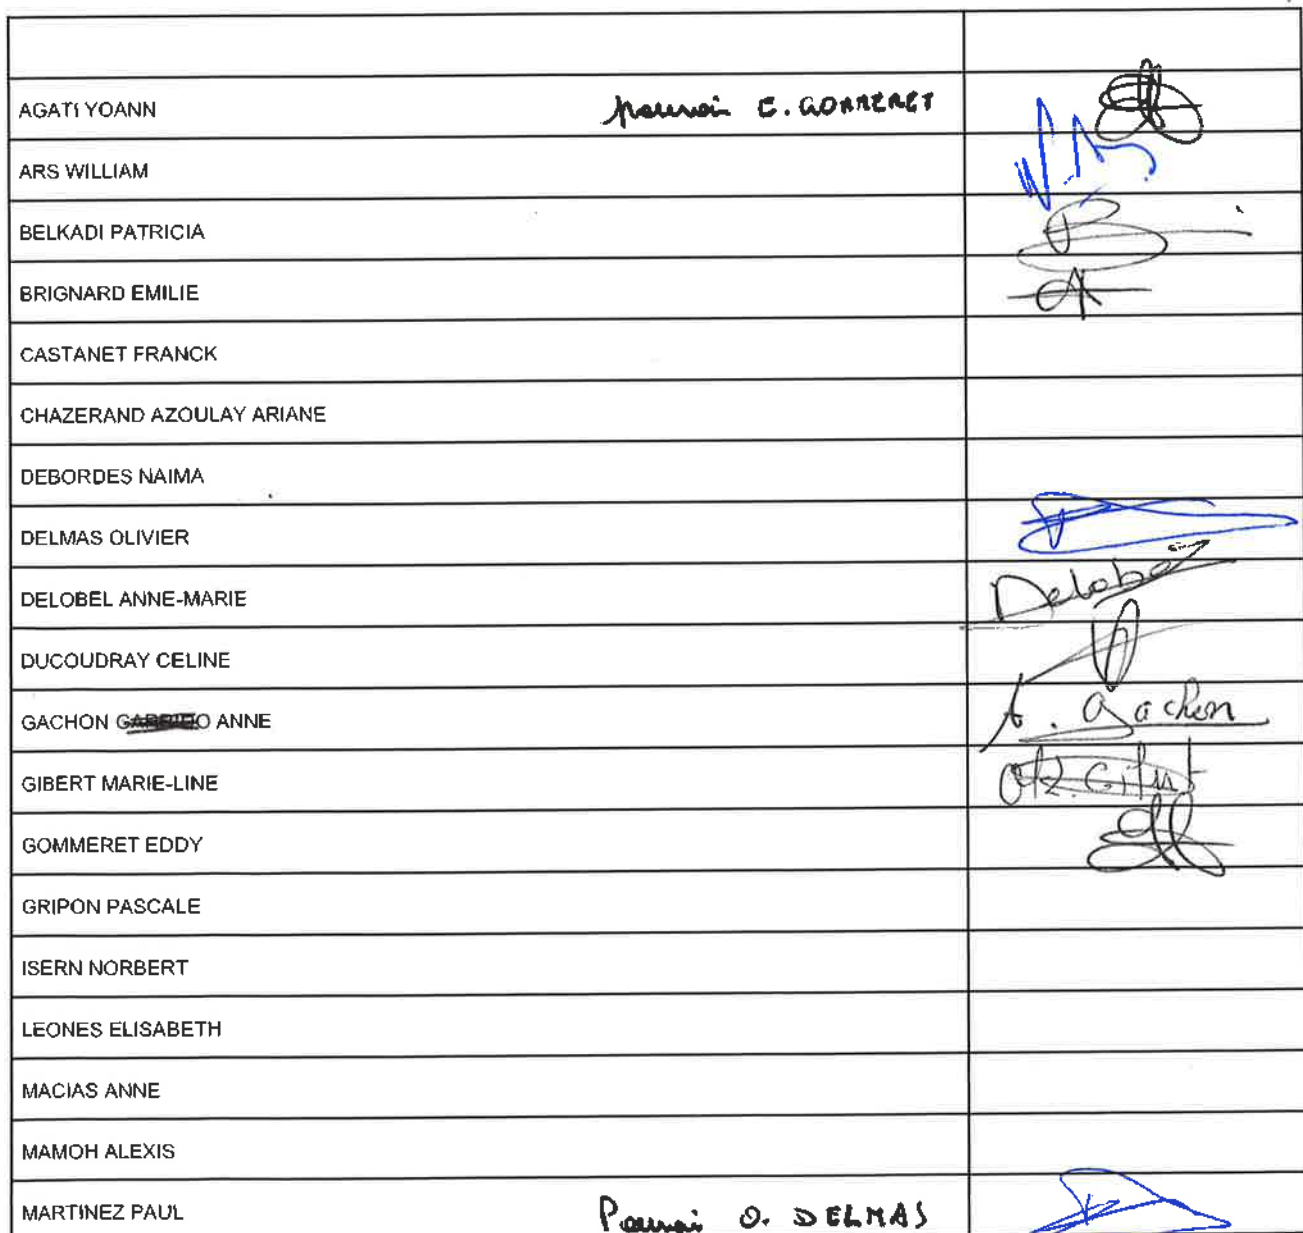 AGATI YOANN pouvoir E. GOMMERET
ARS WILLIAM
BELKADI PATRICIA
BRIGNARD EMILIE
CASTANET FRANCK
CHAZERAND AZOULAY ARIANE
DEBORDES NAIMA
DELMAS OLIVIER
DELOBEL ANNE-MARIE Delobel
DUCOUDRAY CELINE
GACHON ANNE A. Gachon
GIBERT MARIE-LINE
GOMMERET EDDY
GRIPON PASCALE
ISERN NORBERT
LEONES ELISABETH
MACIAS ANNE
MAMOH ALEXIS
MARTINEZ PAUL Pouvoir O. DELMAS